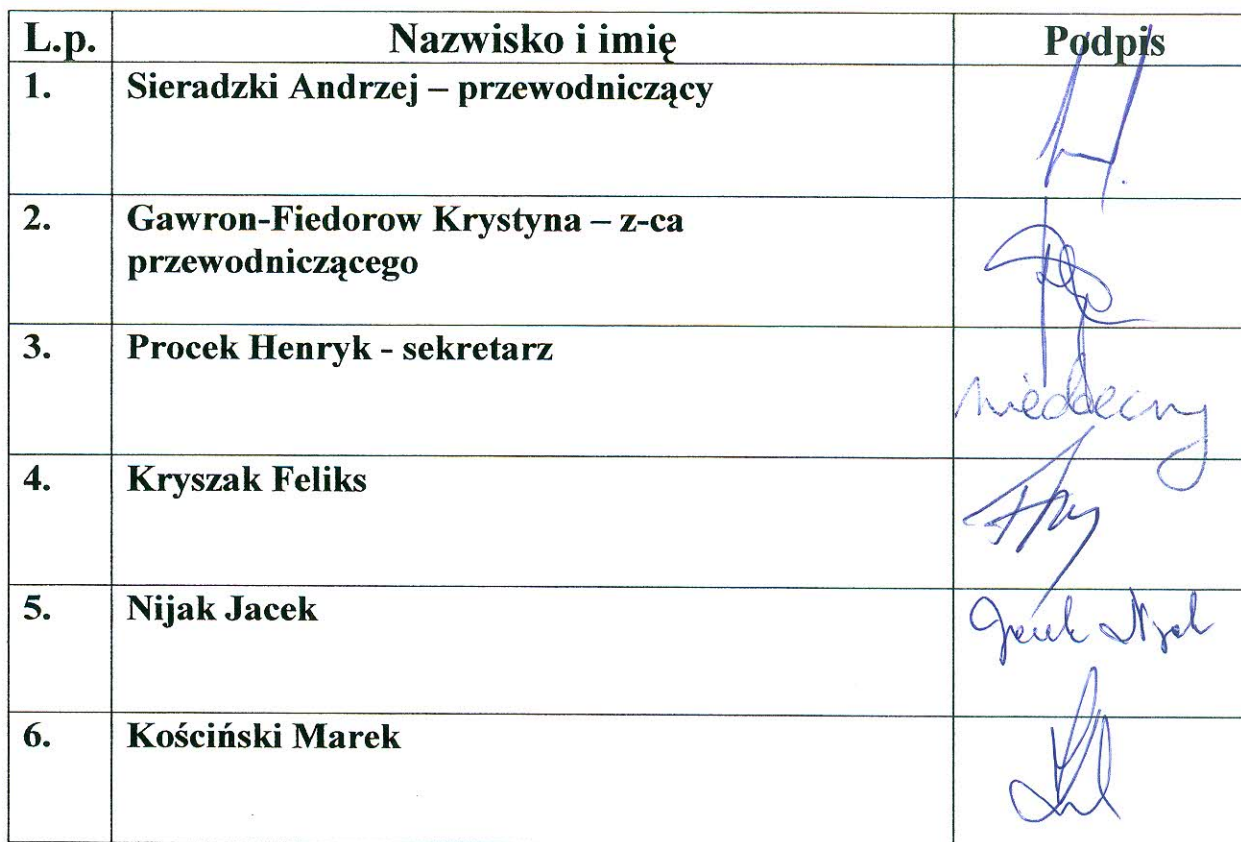 L.p. Nazwisko i imię Podpis
1. Sieradzki Andrzej – przewodniczący
2. Gawron-Fiedorow Krystyna – z-ca
przewodniczącego
3. Procek Henryk - sekretarz
nieobecny
4. Kryszak Feliks
5. Nijak Jacek Jacek Nijak
6. Kościński Marek